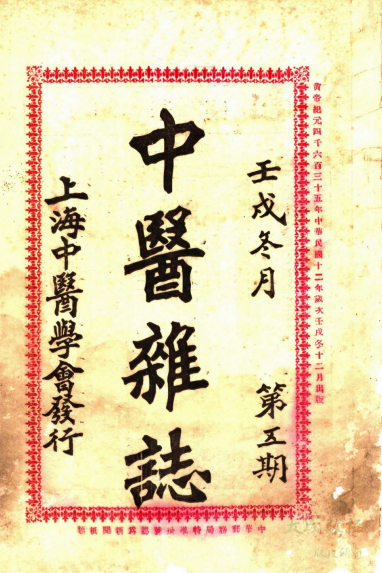 黃帝紀元四千六百三十五年中華民國十二年歲次壬戌冬十二月出版
壬戌冬月
第五期
中醫雜誌
上海中醫學會發行
中華郵務局特准掛號認爲新聞紙類